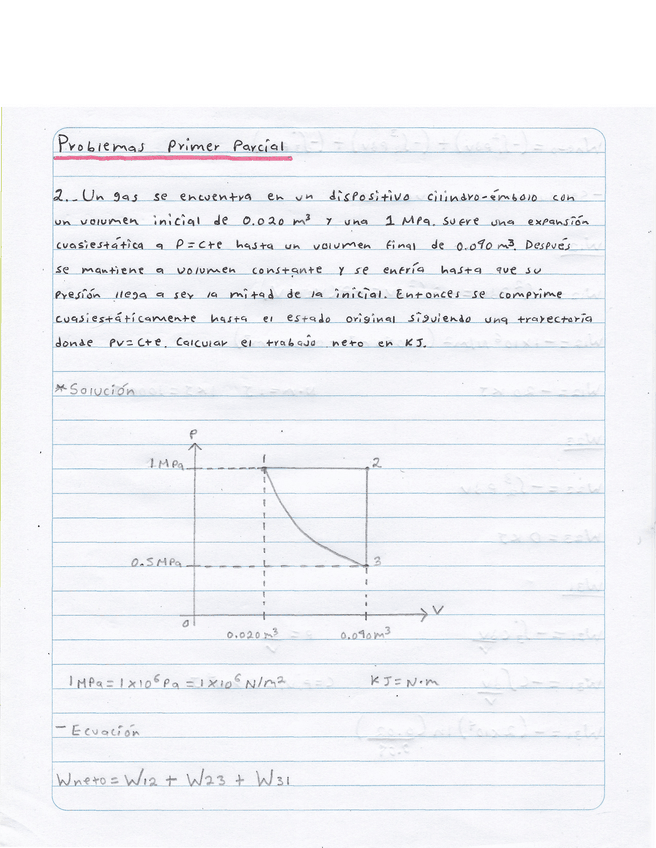 Problemas Primer Parcial
2.- Un gas se encuentra en un dispositivo cilindro-émbolo con
un volumen inicial de 0.020 m³ y una 1 MPa. Sufre una expansión
cuasiestática a P=Cte hasta un volumen final de 0.090 m³. Después
se mantiene a volumen constante y se enfría hasta que su
presión llega a ser la mitad de la inicial. Entonces se comprime
cuasiestáticamente hasta el estado original siguiendo una trayectoria
donde PV=Cte. Calcular el trabajo neto en KJ.
*Solución
P
1
1MPa
2
0.5MPa
3
0
V
0.020m³
0.090m³
1MPa=1x10⁶Pa=1x10⁶N/m² KJ=N·m
-Ecuación
Wneto=W12 + W23 + W31